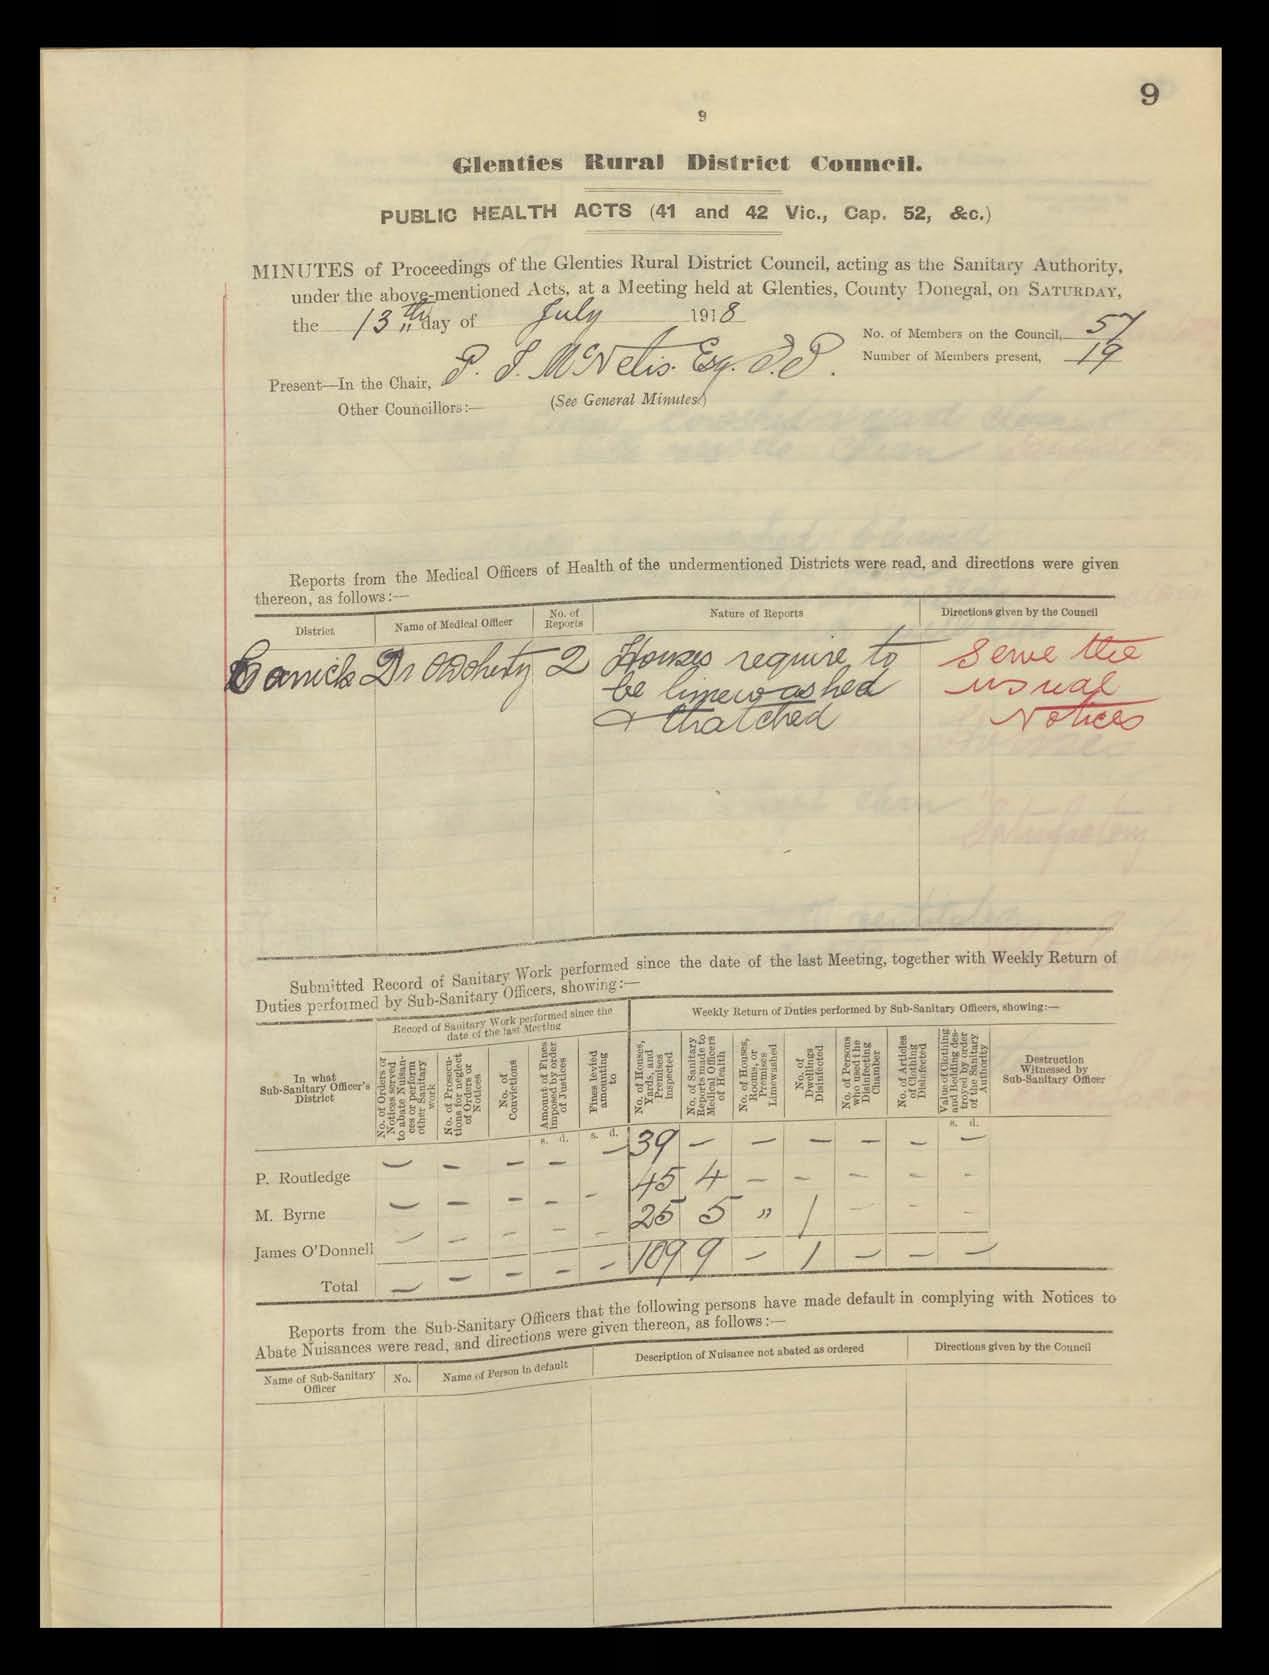 9
9
Glenties Rural District Council.
PUBLIC HEALTH ACTS (41 and 42 Vic., Cap. 52, &c.)
MINUTES of Proceedings of the Glenties Rural District Council, acting as the Sanitary Authority,
under the above-mentioned Acts, at a Meeting held at Glenties, County Donegal, on SATURDAY,
the 13th day of July 1918
No. of Members on the Council, 57
Number of Members present, 19
Present—In the Chair, P. J. McNelis Esq. J.P.
Other Councillors:— (See General Minutes)
Reports from the Medical Officers of Health of the undermentioned Districts were read, and directions were given
thereon, as follows:—
District Name of Medical Officer No. of Reports Nature of Reports Directions given by the Council
Carrick Dr O'Doherty 2 Houses require to Serve the
be limewashed usual
& thatched Notices
Submitted Record of Sanitary Work performed since the date of the last Meeting, together with Weekly Return of
Duties performed by Sub-Sanitary Officers, showing:—
Record of Sanitary Work performed since the date of the last Meeting
Weekly Return of Duties performed by Sub-Sanitary Officers, showing:—
In what Sub-Sanitary Officer's District
No. of Orders or Notices served to abate Nuisances or perform other Sanitary work
No. of Prosecutions for neglect of Orders or Notices
No. of Convictions
Amount of Fines imposed by order of Justices
Fines levied amounting to
No. of Houses, Yards, and Premises inspected
No. of Sanitary Reports made to Medical Officers of Health
No. of Houses, Rooms, or Premises Limewashed
No. of Dwellings Disinfected
No. of Persons who used the Disinfecting Chamber
No. of Articles of Clothing Disinfected
Value of Clothing and Bedding destroyed by order of the Sanitary Authority
Destruction Witnessed by Sub-Sanitary Officer
s. d. s. d. s. d.
P. Routledge — — — — — 39 — — — — — —
M. Byrne — — — — — 45 4 — — — — —
James O'Donnell — — — — — 25 5 " 1 — — —
Total — — — — — 109 9 — 1 — — —
Reports from the Sub-Sanitary Officers that the following persons have made default in complying with Notices to
Abate Nuisances were read, and directions were given thereon, as follows:—
Name of Sub-Sanitary Officer No. Name of Person in default Description of Nuisance not abated as ordered Directions given by the Council